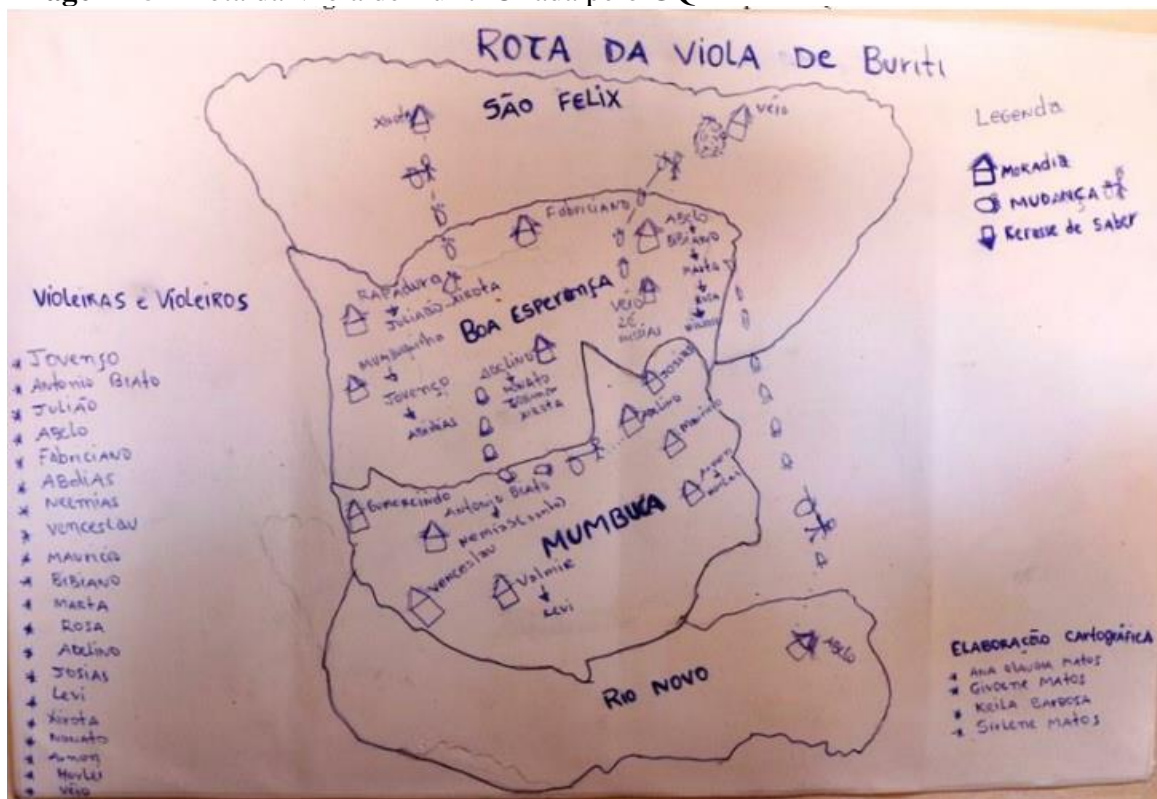 ROTA DA VIOLA DE Buriti
SÃO FELIX
Xirota
Véio
Legenda
MORADIA
MUDANÇA
Repasse de Saber
FABRICIANO
RAPADURA
JULIÃO
XIROTA
BOA ESPERANÇA
MUMBUQUINHO
JOVENÇO
ABDIAS
ADELINO
NONATO
XIROTA
VEIO
AGELO
BIBIANO
MARTA
ROSA
JOSIAS
ADELINO
MAURICIO
GUMERCINDO
Antonio Biato
VENCESLAU
Valmir
Levi
MUMBUCA
RIO NOVO
AGELO
VIOLEIRAS e VIOLEIROS
* JOVENÇO
* ANTONIO BIATO
* JULIÃO
* AGELO
* FABRICIANO
* ABDIAS
* NEEMIAS
* VENCESLAU
* MAURICIO
* BIBIANO
* MARTA
* ROSA
* ADELINO
* JOSIAS
* Levi
* Xirota
* NONATO
* Arnon
* VÉIO
ELABORAÇÃO CARTOGRÁFICA
* ANA CLAUDIA MATOS
* GIRLENE MATOS
* KEILA BARBOSA
* SIRLENE MATOS